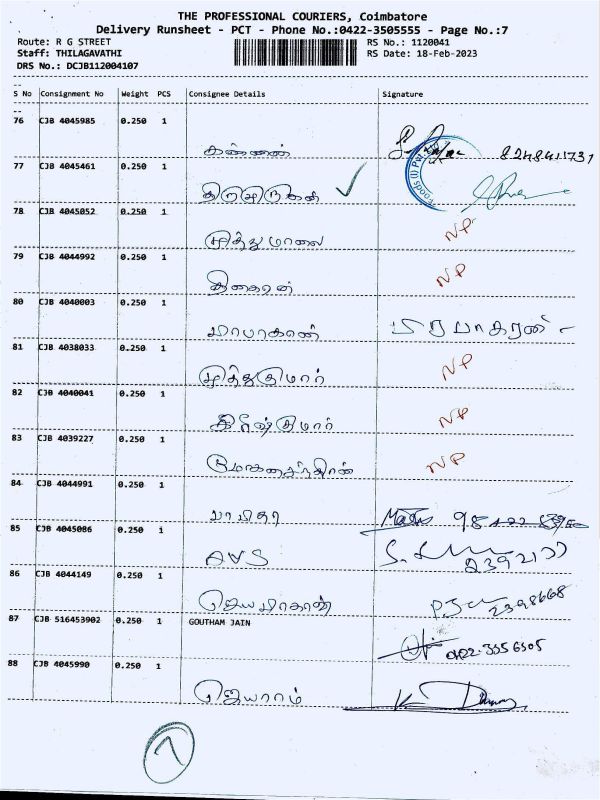 THE PROFESSIONAL COURIERS, Coimbatore
Delivery Runsheet - PCT - Phone No.:0422-3505555 - Page No.:7
Route: R G STREET
Staff: THILAGAVATHI
DRS No.: DCJB112004107
RS No.: 1120041
RS Date: 18-Feb-2023
S No Consignment No Weight PCS Consignee Details Signature
76 CJB 4045985 0.250 1
கண்ணன் 8248411731
77 CJB 4045461 0.250 1
Foods (I) Pvt.
78 CJB 4045052 0.250 1
முத்துமாலை NP
79 CJB 4044992 0.250 1
NP
80 CJB 4040003 0.250 1
பிரபாகரன்
81 CJB 4038033 0.250 1
முத்துகுமார் NP
82 CJB 4040041 0.250 1
NP
83 CJB 4039227 0.250 1
NP
84 CJB 4044991 0.250 1
85 CJB 4045086 0.250 1
AVS
86 CJB 4044149 0.250 1
2398668
87 CJB 516453902 0.250 1 GOUTHAM JAIN
88 CJB 4045990 0.250 1
ஜெயராம்
7